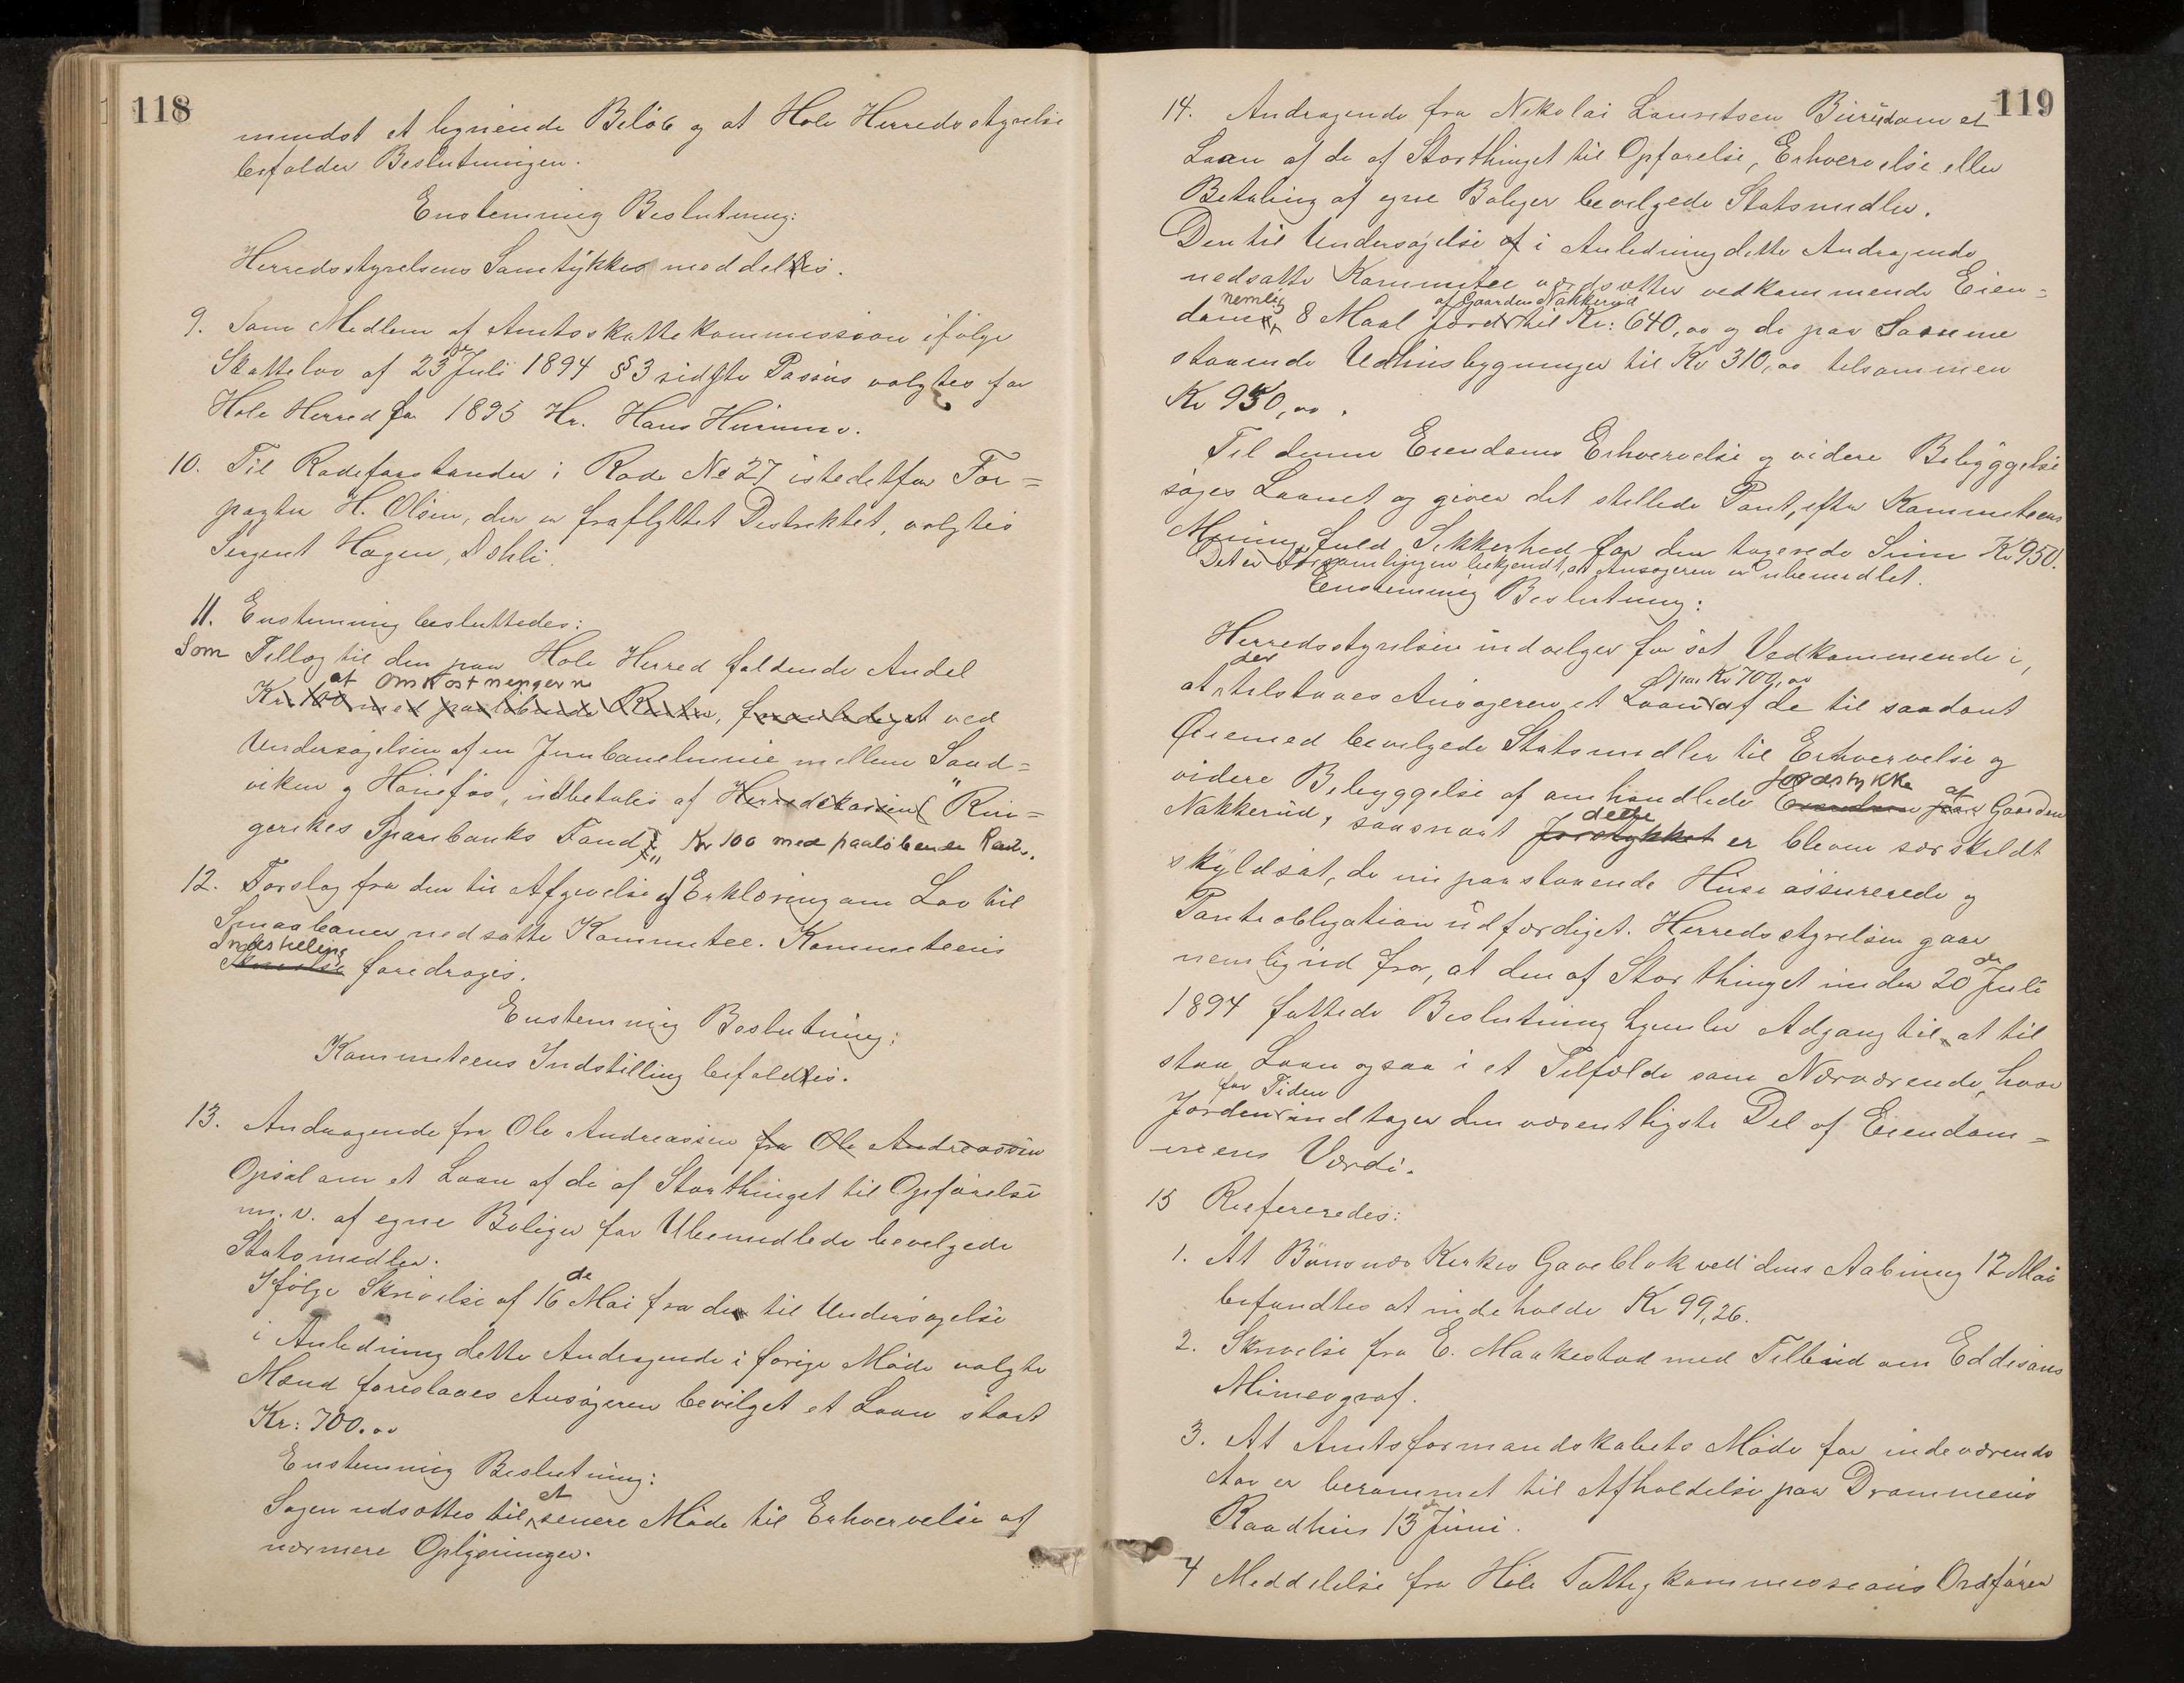 118
mindst et lignende Beløb og at Hole Herredsstyrelse
bifalder Beslutningen.
Enstemmig Beslutning:
Herredsstyrelsens Samtykke meddeltes.
9. Som Medlem af Amtsskattekommission ifølge
Skattelov af 23de Juli 1894 § 3 sidste Passus valgtes for
Hole Herred for 1895 Hr. Hans
10. Til Rodeforstander i Rode No 27 istedetfor For=
pagter H. Olsen, der er fraflyttet Distriktet, valgtes
Sergent Hagen, Dehli.
11. Enstemmig besluttedes:
Som Tillæg til den paa Hole Herred faldende Andel
af Omkostningerne
Kr. 100 med paaløbende Renter, foranlediget ved
Undersøgelsen af en Jernbanelinie mellem Sand=
viken og Hønefos, indbetales af Herredskassen ("Rin=
gerikes Sparebanks Fond)" Kr 100 med paaløbende Rente.
12. Forslag fra den til Afgivelse af Erklæring om Lov til
Smaabaner nedsatte Kommitee. Kommiteens
Indstilling
Skrivelse foredroges.
Enstemmig Beslutning:
Kommiteens Indstilling bifaldtes.
13. Andragende fra Ole Andreassen fra Ole Andreassen
Opsal om et Laan af de af Storthinget til Opførelse
m. v. af egne Boliger for Ubemidlede bevilgede
Statsmidler.
Ifølge Skrivelse af 16de Mai fra de til Undersøgelse
i Anledning dette Andragende i forige Møde valgte
Mænd foreslaaes Ansøgeren bevilget et Laan stort
Kr: 700.00
Enstemmig Beslutning:
Sagen udsattes til et senere Møde til Erhvervelse af
nærmere Oplysninger.
119
14. Andragende fra Nikolai Lauritsen Bürüd om et
Laan af de af Storthinget til Opførelse, Erhvervelse eller
Betaling af egne Boliger bevilgede Statsmidler.
Den til Undersøgelse af i Anledning dette Andragende
nedsatte Kommitee værdsætter vedkommende Eien=
nemlig af Gaarden Nakkerud
dom, 8 Maal Jord til Kr: 640,00 og de paa Samme
staaende Udhusbygninger til Kr 310,00 tilsammen
Kr 950,00.
Til denne Eiendoms Erhvervelse og videre Bebyggelse
søges Laanet og giver det stillede Pant, efter Kommiteens
Mening, fuld Sikkerhed for den tagerede Sum Kr 950.
Det er Forsamlingen bekjendt, at Ansøgeren er ubemidlet.
Enstemmig Beslutning:
Herredsstyrelsen indvilger for sit Vedkommende i,
der paa Kr 700,00
at tilstaaes Ansøgeren et Laan af de til saadant
Øiemed bevilgede Statsmidler til Erhvervelse og
Jordstykke af
videre Bebyggelse af omhandlede Eiendom paa Gaarden
dette
Nakkerud, saasnart Jorstykket er bleven særskildt
skyldsat, de nu paastaaende Huse assurerede og
Panteobligation udfærdiget. Herredsstyrelsen gaar
nemlig ud fra, at den af Storthinget under 20de Juli
1894 fattede Beslutning hjemler Adgang til at til
staa Laan ogsaa i et Tilfælde som Nærværende, hvor
for Tiden
Jorden indtager den væsentligste Del af Eiendom=
mens Værdi.
15 Refereredes:
1. At Bønsnes Kirkes Gaveblok ved dens Aabning 12 Mai
befandtes at indeholde Kr 99,26.
2. Skrivelse fra E. Maakestad med Tilbud om Eddisons
Mimeograf.
3. At Amtsformandskabets Møde for indeværende
Aar er berammet til Afholdelse paa Drammens
Raadhus 13de Juni.
4 Meddelelse fra Hole Fattigkommissions Ordfører